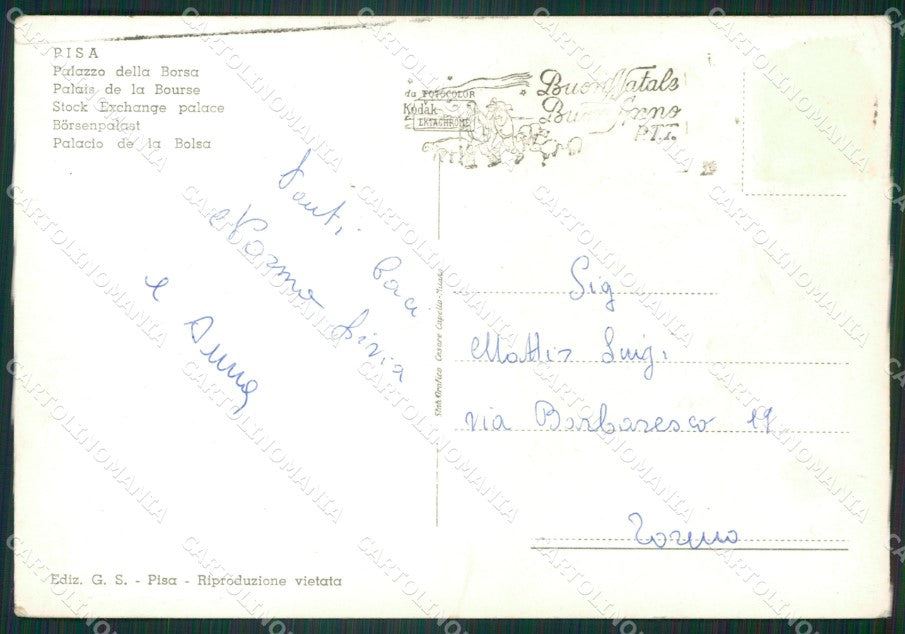 PISA
Palazzo della Borsa
Palais de la Bourse
Stock Exchange palace
Börsenpalast
Palacio de la Bolsa
da FOTOCOLOR
Kodak
EKTACHROME
Buon Natale
Buon Anno
P.T.
Tanti baci
Norma Livia
e Anna
Stab. Grafico Cesare Capello - Milano
Sig
Mattis Luigi
via Barbaresco 19
Torino
Ediz. G. S. - Pisa - Riproduzione vietata
CARTOLINOMANIA